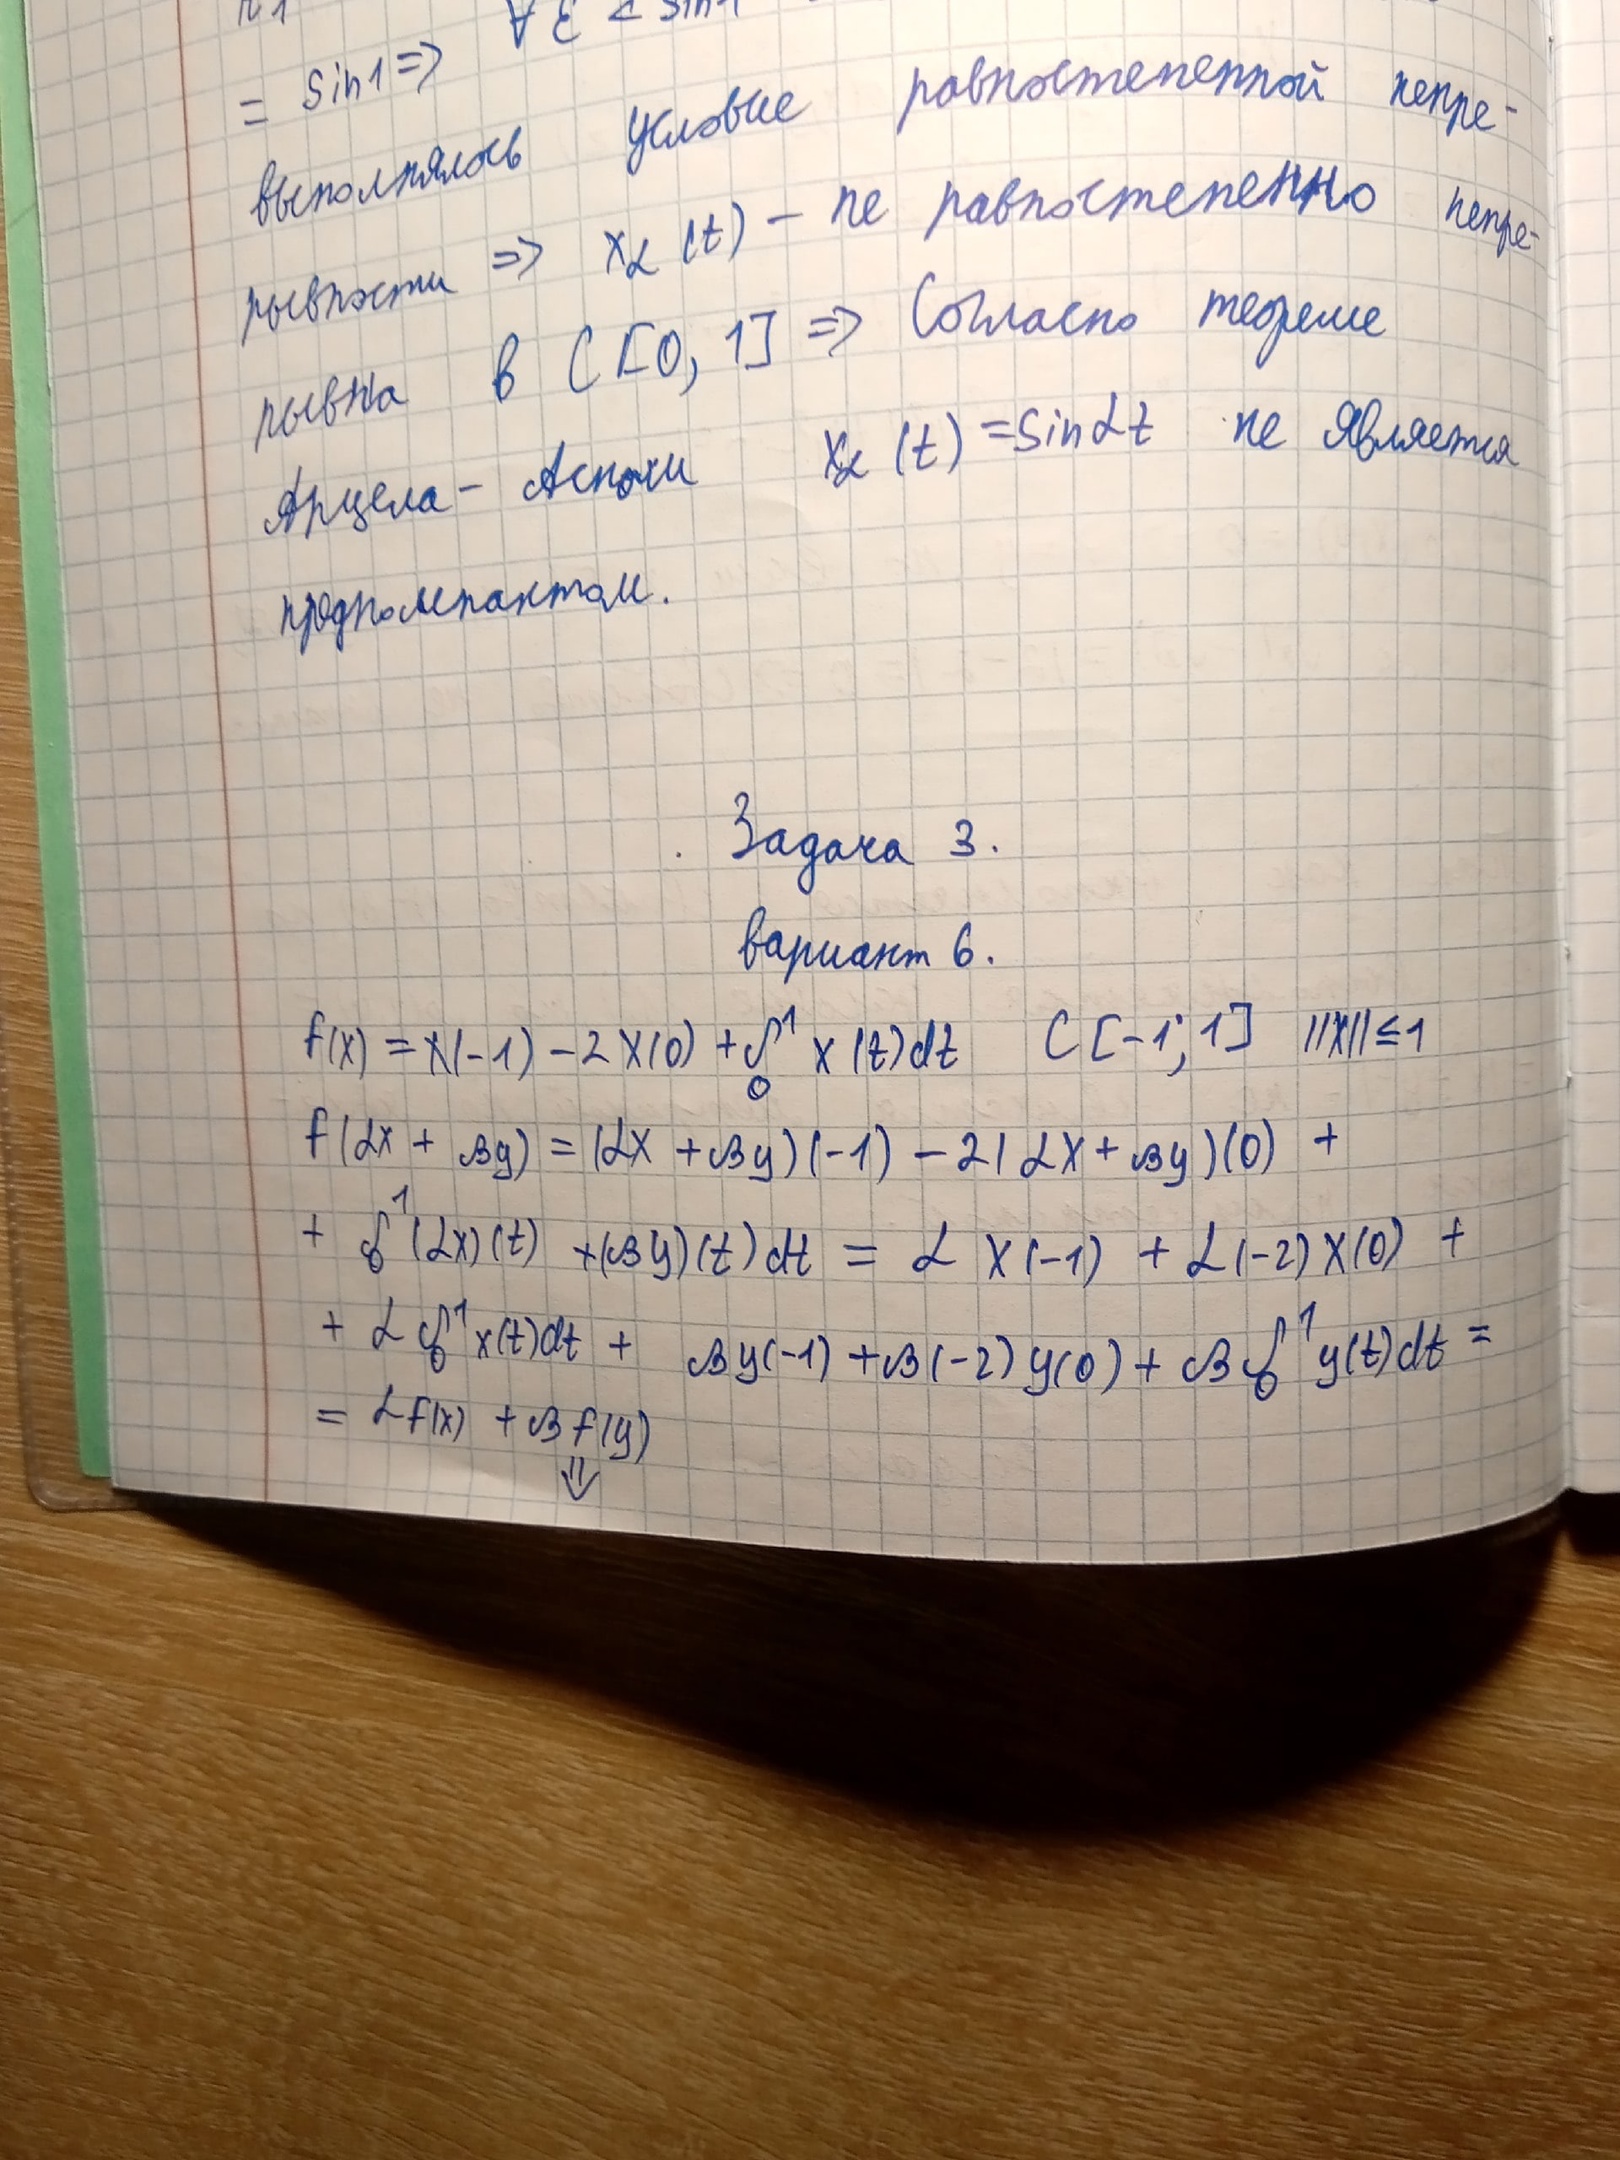 = Sin1 => ∀ ε < sin1
выполнялось условие равностепенной непре-
рывности => xα (t) - не равностепенно непре-
рывна в C [0, 1] => Согласно теореме
Арцела - Асколи xα (t) = Sinαt не является
предкомпактом.
Задача 3.
вариант 6.
f(x) = x(-1) - 2x(0) + ∫₀¹ x(t)dt C [-1; 1] ||x|| ≤ 1
f(αx + βy) = (αx + βy)(-1) - 2(αx + βy)(0) +
+ ∫₀¹ (αx)(t) + (βy)(t)dt = α x(-1) + α(-2) x(0) +
+ α ∫₀¹ x(t)dt + βy(-1) + β(-2) y(0) + β ∫₀¹ y(t)dt =
= αf(x) + βf(y)
⇓